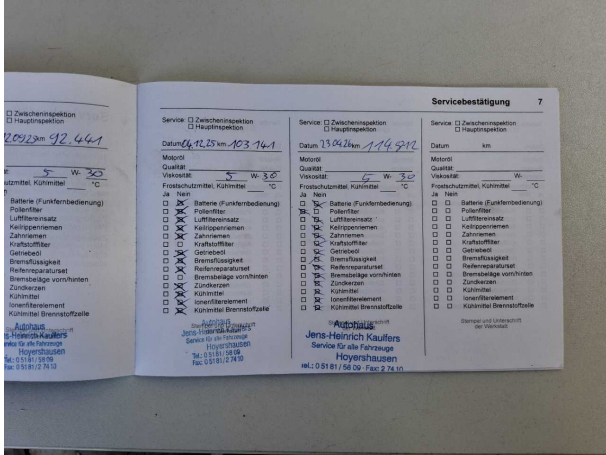 Servicebestätigung 7
☐ Zwischeninspektion
☐ Hauptinspektion
km 92.441
5 W- 30
Frostschutzmittel, Kühlmittel °C
Batterie (Funkfernbedienung)
Pollenfilter
Luftfiltereinsatz
Keilrippenriemen
Zahnriemen
Kraftstofffilter
Getriebeöl
Bremsflüssigkeit
Reifenreparaturset
Bremsbeläge vorn/hinten
Zündkerzen
Kühlmittel
Ionenfilterelement
Kühlmittel Brennstoffzelle
Autohaus
Jens-Heinrich Kaulfers
Service für alle Fahrzeuge
Hoyershausen
Tel.: 0 51 81 / 58 09
Fax: 0 51 81 / 2 74 10
Service: ☐ Zwischeninspektion
☐ Hauptinspektion
Datum 04.12.25 km 103 141
Motoröl
Qualität:
Viskosität: 5 W- 30
Frostschutzmittel, Kühlmittel °C
Ja Nein
Batterie (Funkfernbedienung)
Pollenfilter
Luftfiltereinsatz
Keilrippenriemen
Zahnriemen
Kraftstofffilter
Getriebeöl
Bremsflüssigkeit
Reifenreparaturset
Bremsbeläge vorn/hinten
Zündkerzen
Kühlmittel
Ionenfilterelement
Kühlmittel Brennstoffzelle
Stempel und Unterschrift
der Werkstatt
Autohaus
Jens-Heinrich Kaulfers
Service für alle Fahrzeuge
Hoyershausen
Tel.: 0 51 81 / 58 09
Fax: 0 51 81 / 2 74 10
Service: ☐ Zwischeninspektion
☐ Hauptinspektion
Datum 23.04.26 km 114.912
Motoröl
Qualität:
Viskosität: 5 W- 30
Frostschutzmittel, Kühlmittel °C
Ja Nein
Batterie (Funkfernbedienung)
Pollenfilter
Luftfiltereinsatz
Keilrippenriemen
Zahnriemen
Kraftstofffilter
Getriebeöl
Bremsflüssigkeit
Reifenreparaturset
Bremsbeläge vorn/hinten
Zündkerzen
Kühlmittel
Ionenfilterelement
Kühlmittel Brennstoffzelle
Autohaus
Jens-Heinrich Kaulfers
Service für alle Fahrzeuge
Hoyershausen
Tel.: 0 51 81 / 58 09 · Fax: 2 74 10
Service: ☐ Zwischeninspektion
☐ Hauptinspektion
Datum km
Motoröl
Qualität:
Viskosität: W-
Frostschutzmittel, Kühlmittel °C
Ja Nein
☐ ☐ Batterie (Funkfernbedienung)
☐ ☐ Pollenfilter
☐ ☐ Luftfiltereinsatz
☐ ☐ Keilrippenriemen
☐ ☐ Zahnriemen
☐ ☐ Kraftstofffilter
☐ ☐ Getriebeöl
☐ ☐ Bremsflüssigkeit
☐ ☐ Reifenreparaturset
☐ ☐ Bremsbeläge vorn/hinten
☐ ☐ Zündkerzen
☐ ☐ Kühlmittel
☐ ☐ Ionenfilterelement
☐ ☐ Kühlmittel Brennstoffzelle
Stempel und Unterschrift
der Werkstatt